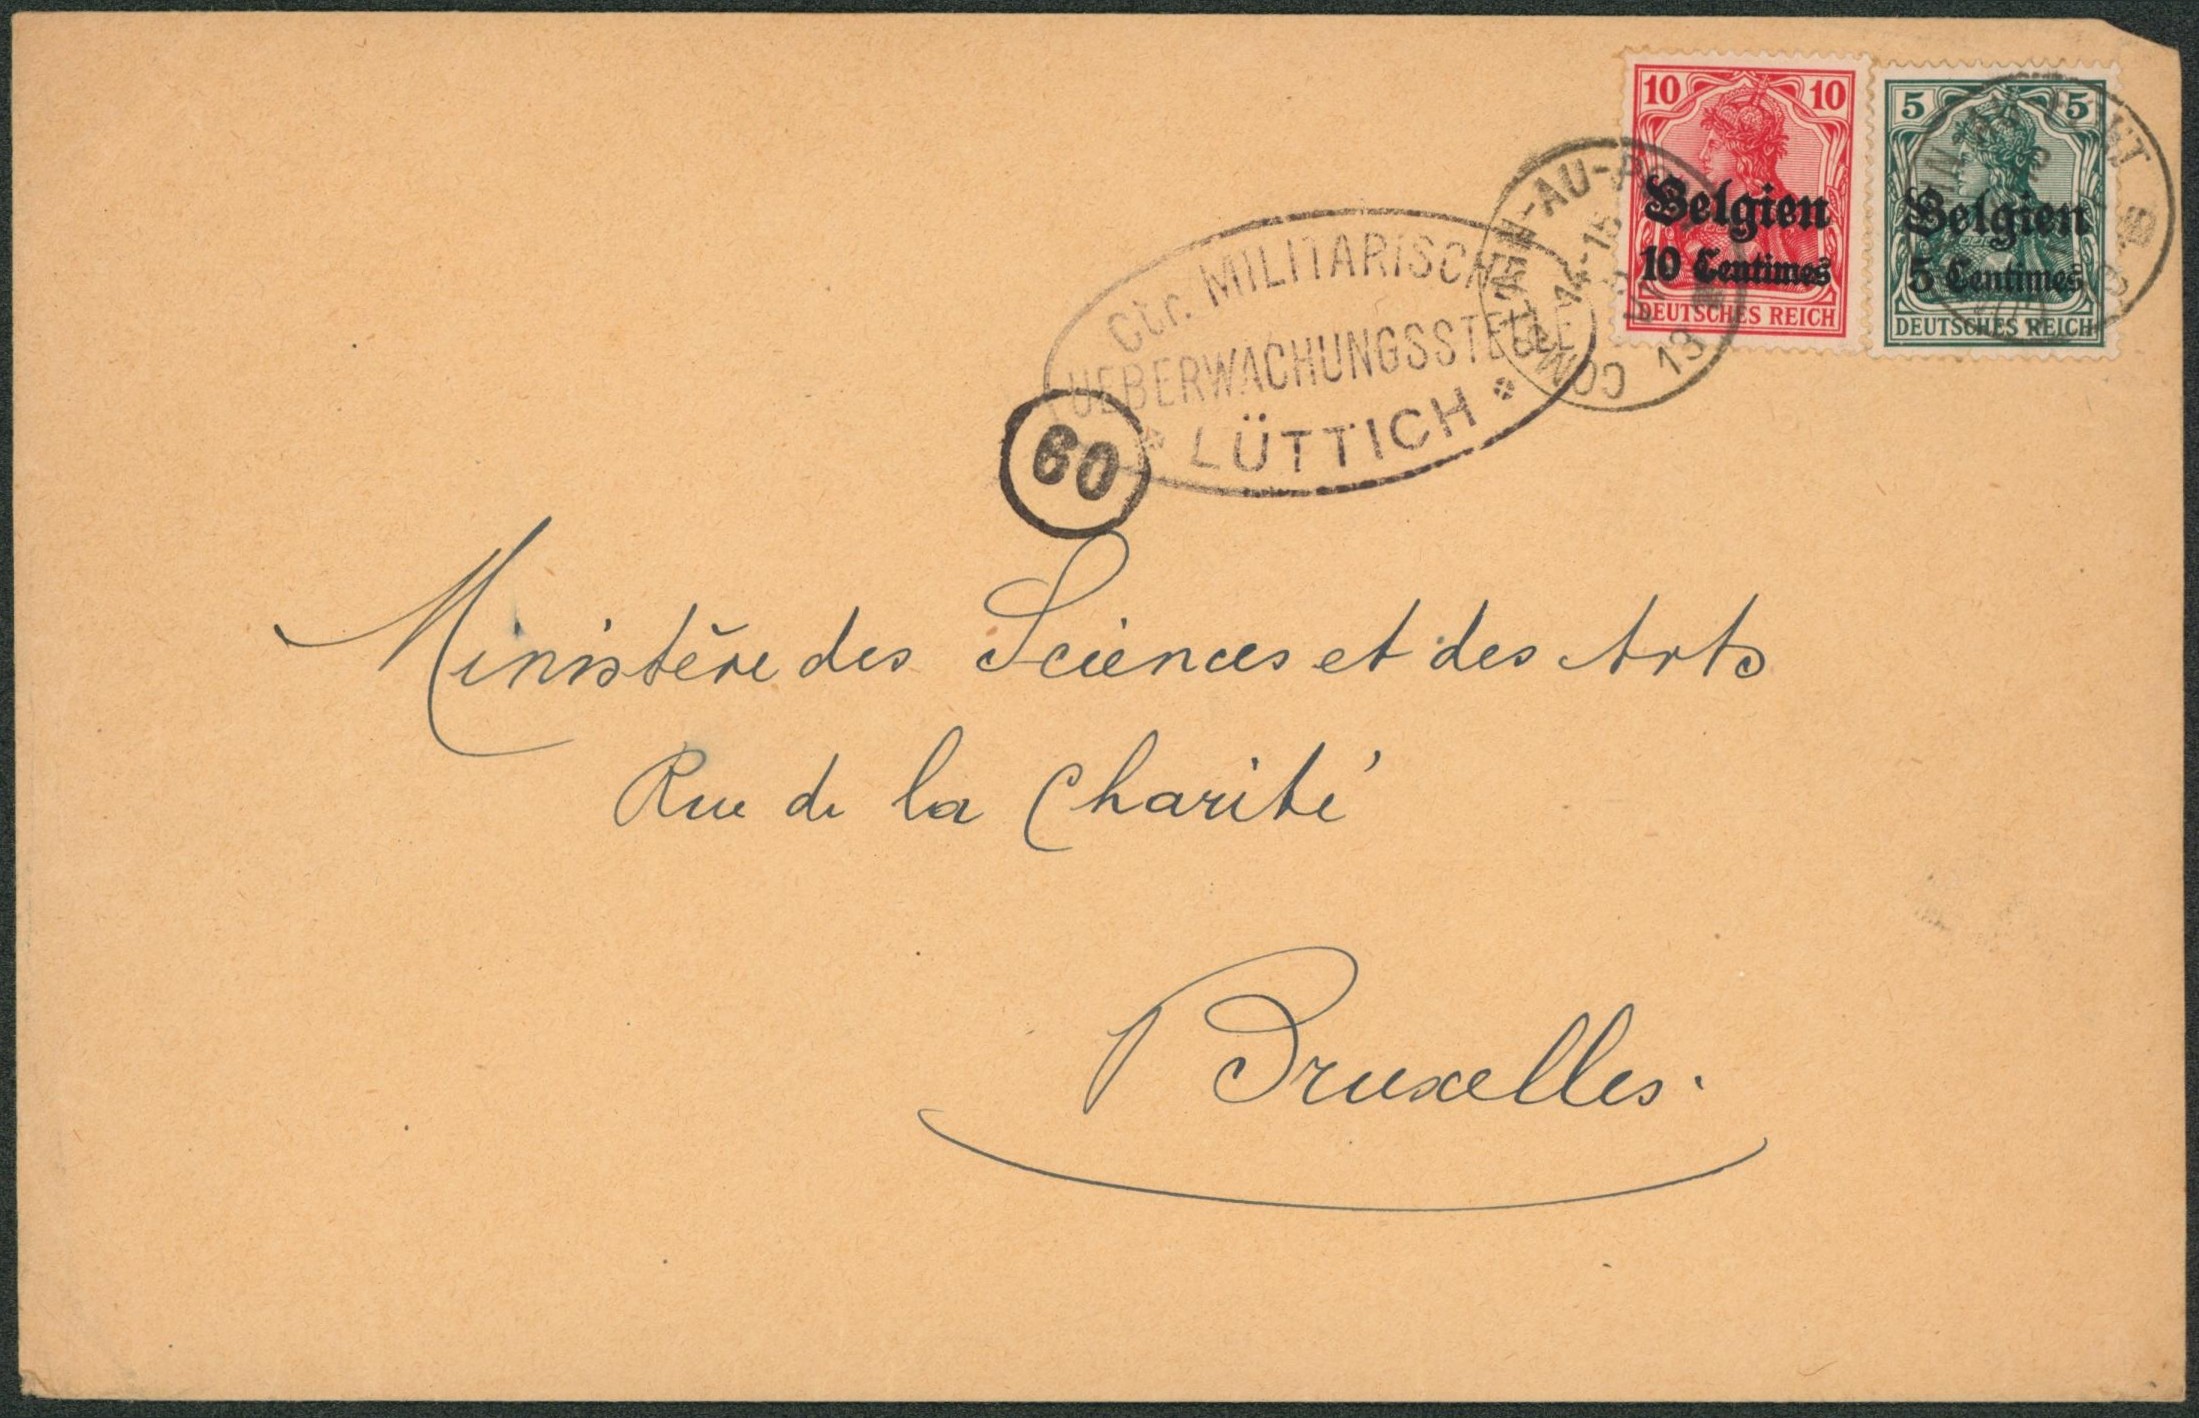 10 10
Belgien
10 Centimes
DEUTSCHES REICH
5 5
Belgien
5 Centimes
DEUTSCHES REICH
COMBLAIN-AU-P
14-15
13
Ctr. MILITARISCH
UEBERWACHUNGSSTELLE
LÜTTICH
60
Ministère des Sciences et des Arts
Rue de la Charité
Bruxelles.